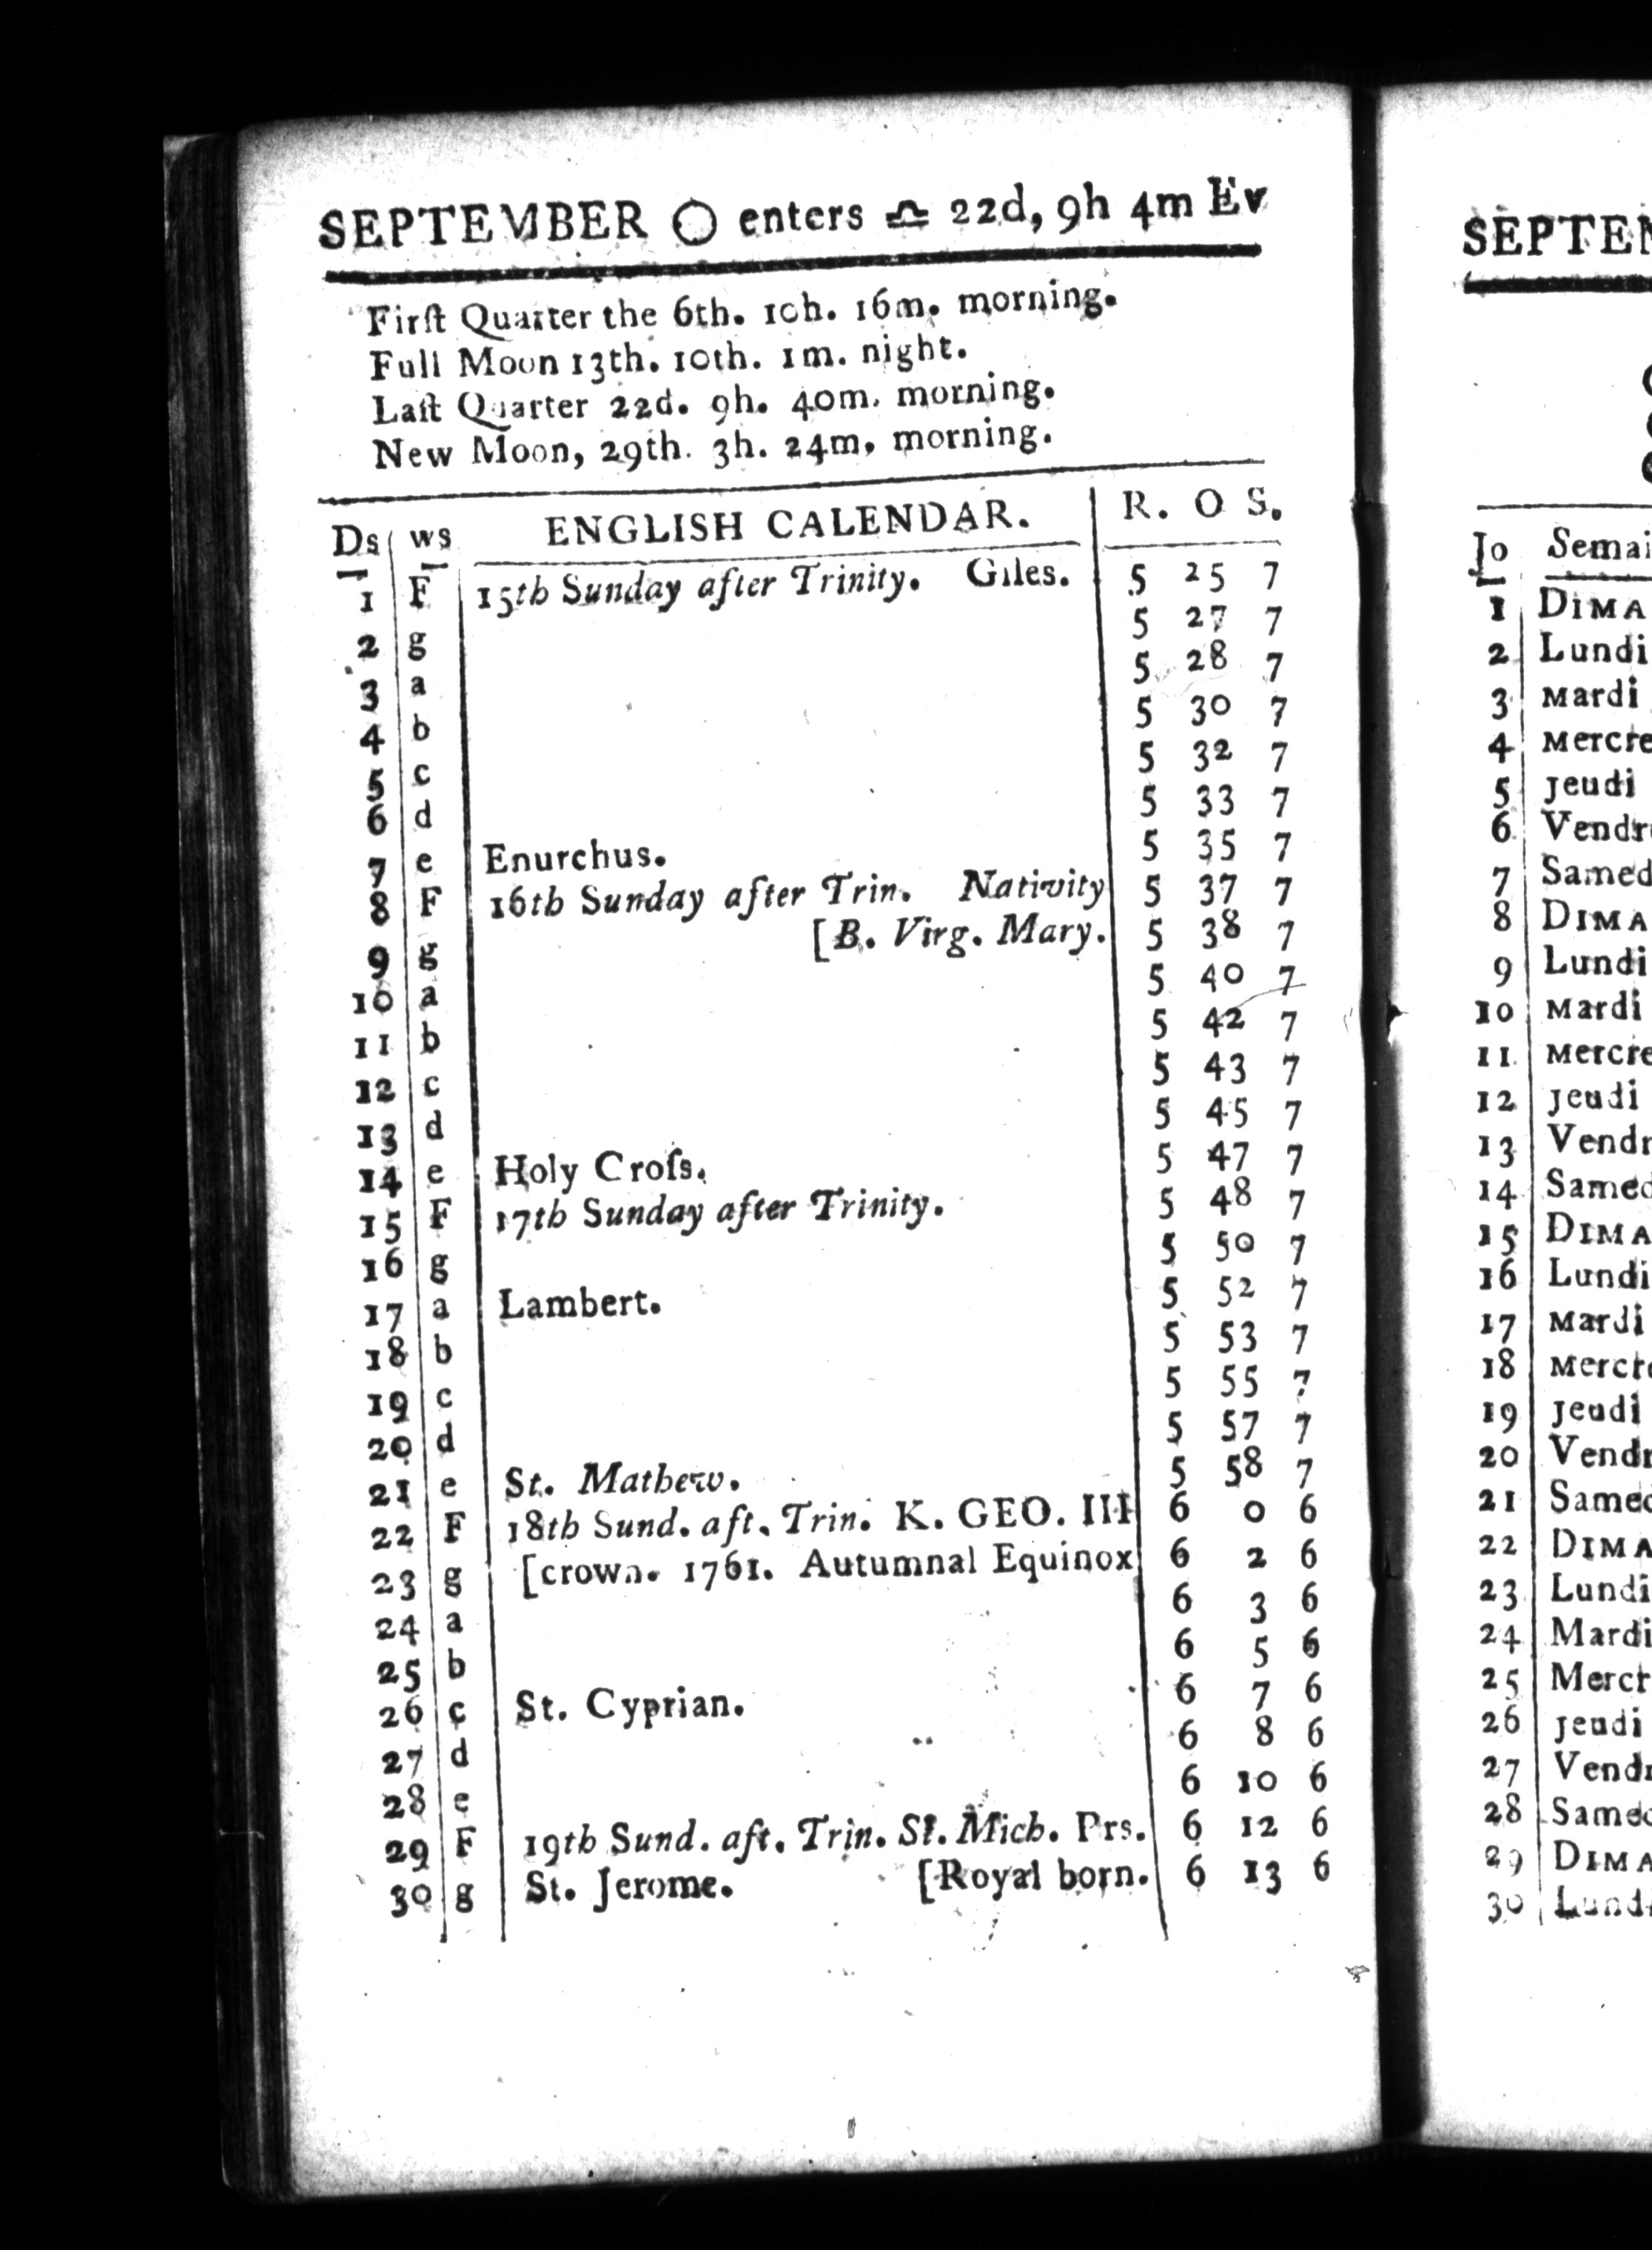 SEPTEMBER ◯ enters ♎ 22d, 9h 4m Ev
Firſt Quarter the 6th. 1ch. 16m. morning.
Full Moon 13th. 10th. 1m. night.
Laſt Quarter 22d. 9h. 40m. morning.
New Moon, 29th. 3h. 24m, morning.
Ds ws ENGLISH CALENDAR. R. O S.
1 F 15th Sunday after Trinity. Giles. 5 25 7
2 g 5 27 7
3 a 5 28 7
4 b 5 30 7
5 c 5 32 7
6 d 5 33 7
7 e Enurchus. 5 35 7
8 F 16th Sunday after Trin. Nativity 5 37 7
9 g [B. Virg. Mary. 5 38 7
10 a 5 40 7
11 b 5 42 7
12 c 5 43 7
13 d 5 45 7
14 e Holy Croſs. 5 47 7
15 F 17th Sunday after Trinity. 5 48 7
16 g 5 50 7
17 a Lambert. 5 52 7
18 b 5 53 7
19 c 5 55 7
20 d 5 57 7
21 e St. Mathew. 5 58 7
22 F 18th Sund. aft. Trin. K. GEO. III 6 0 6
23 g [crown. 1761. Autumnal Equinox 6 2 6
24 a 6 3 6
25 b 6 5 6
26 c St. Cyprian. 6 7 6
27 d 6 8 6
28 e 6 10 6
29 F 19th Sund. aft. Trin. St. Mich. Prs. 6 12 6
30 g St. Jerome. [Royal born. 6 13 6
SEPTE
Jo Semai
1 DIMA
2 Lundi
3 Mardi
4 Mercre
5 Jeudi
6 Vendr
7 Samed
8 DIMA
9 Lundi
10 Mardi
11 Mercre
12 Jeudi
13 Vendr
14 Samed
15 DIMA
16 Lundi
17 Mardi
18 Mercre
19 Jeudi
20 Vendr
21 Samed
22 DIMA
23 Lundi
24 Mardi
25 Mercr
26 Jeudi
27 Vendr
28 Samed
29 DIMA
30 Lund